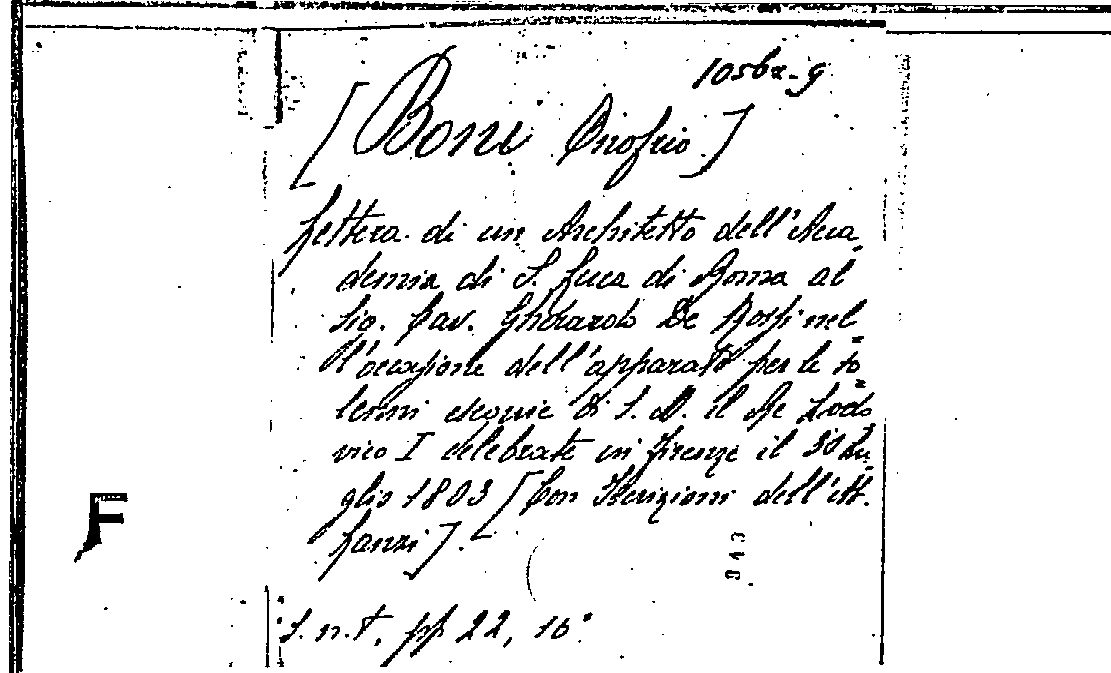 105b2-9
[Boni Onofrio.]
Lettera di un Architetto dell'Acca
demia di S. Luca di Roma al
Sig. Cav. Gherardo De Rossi nel
l'occasione dell'apparato per le so
lenni esequie di S. M. il Re Lodo
vico I celebrate in Firenze il 30 Lu
glio 1803 [Con Iscrizioni dell'ab.
Lanzi].
943
S. n. t. pp 22, 16°
F